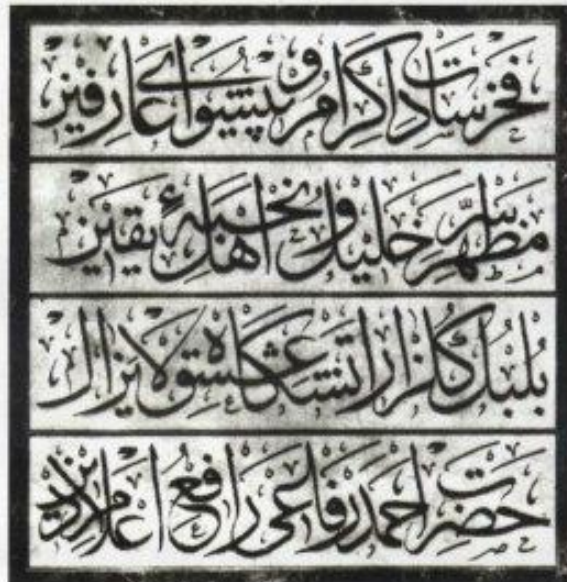 فخر سادات كرام و پیشوای عارفین
مظهر سر خلیل و نخبهٔ اهل یقین
بلبل گلزار آتشگاه عشق لایزال
حضرت احمد رفاعی رافع اعلام دین